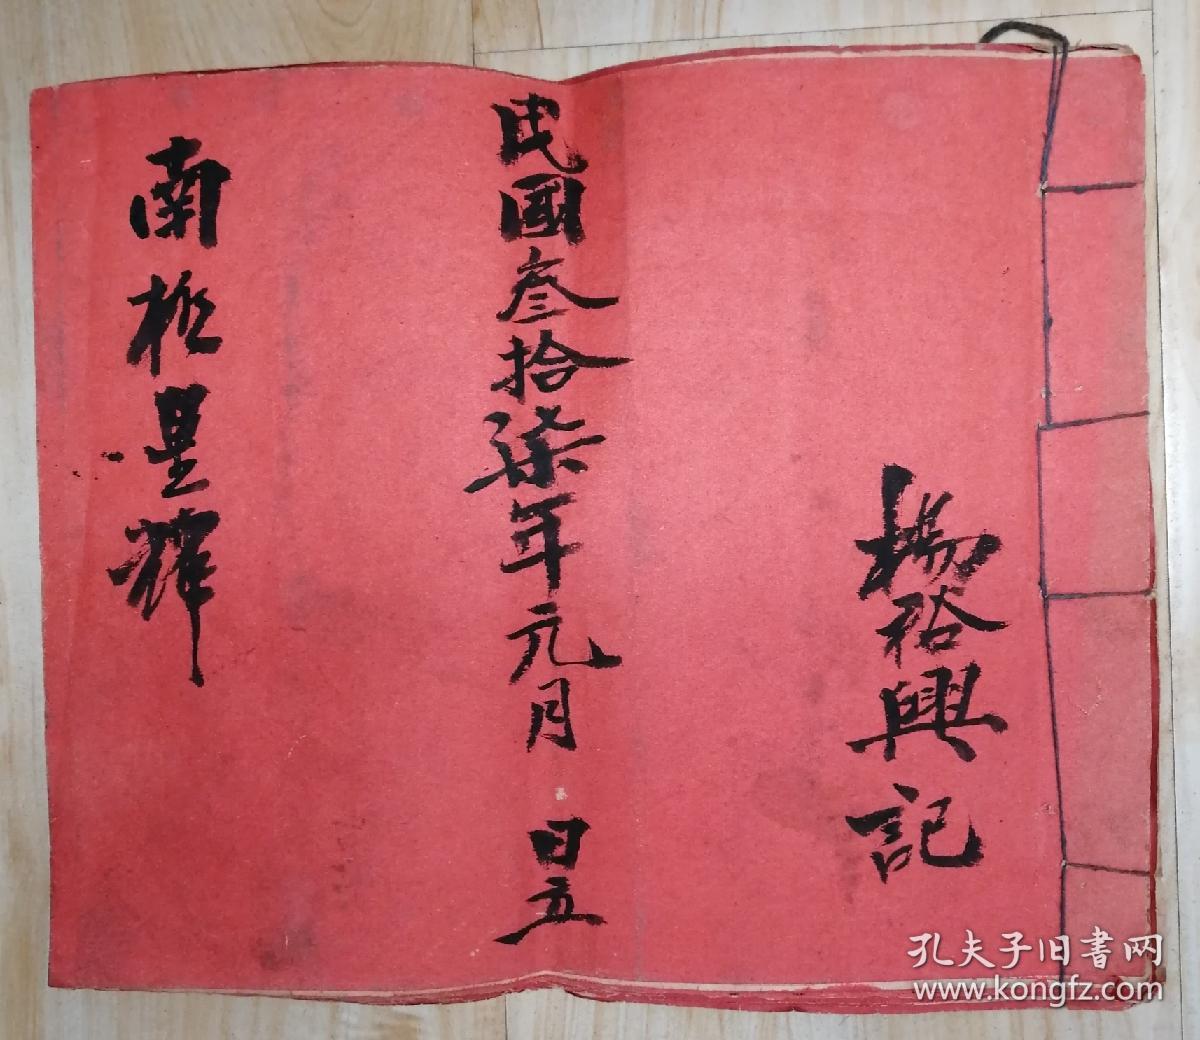 楊裕興記
民國叁拾柒年元月 日立
南極星輝
孔夫子旧書网
www.kongfz.com